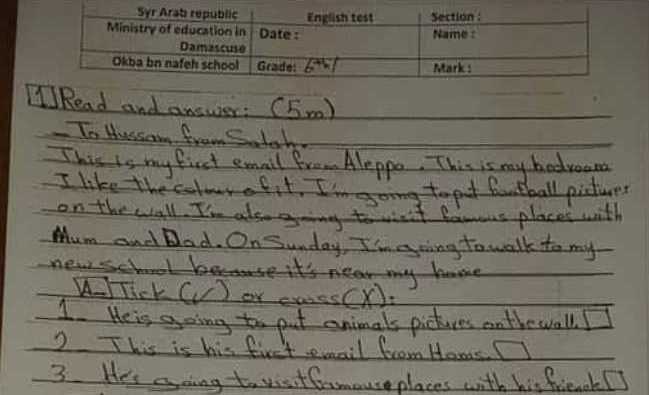 Syr Arab republic English test Section :
Ministry of education in Damascuse Date : Name :
Okba bn nafeh school Grade: 6th/ Mark :
1 Read and answer: (5m)
- To Hussam from Salah.
This is my first email from Aleppo. This is my bedroom
I like the colour of it. I'm going to put football pictures
on the wall. I'm also going to visit famous places with
Mum and Dad. On Sunday, I'm going to walk to my
new school because it's near my home
A- Tick (✓) or cross (X):
1- He is going to put animals pictures on the wall.
2- This is his first email from Homs.
3- He's going to visit famouse places with his friends